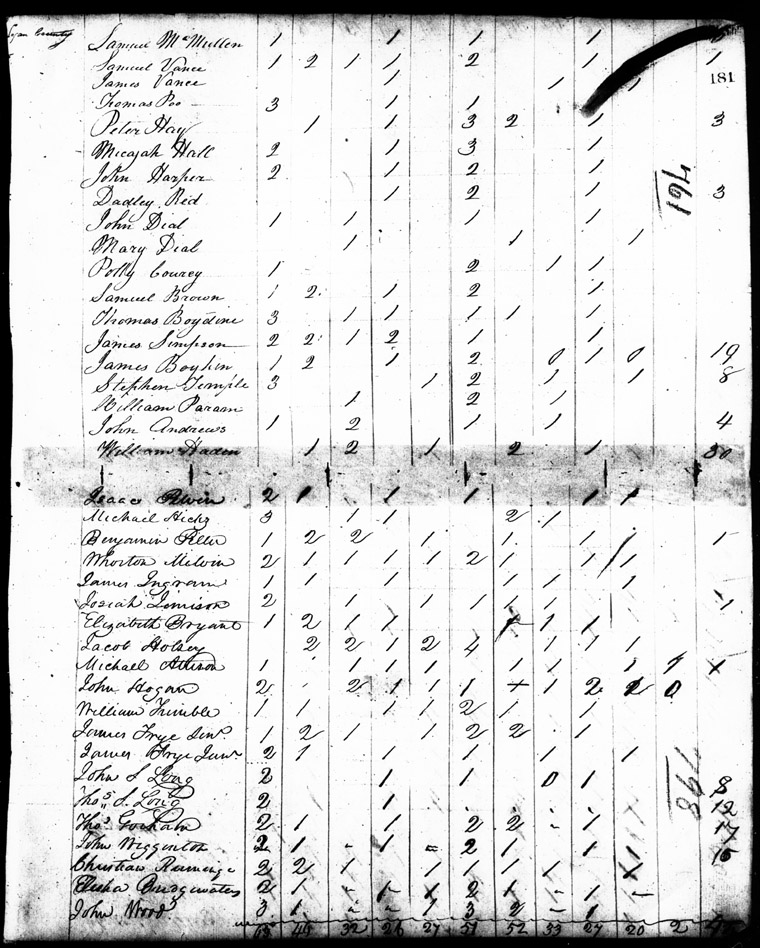 Logan County
Samuel McMullen 1 1 1
Samuel Vance 1 2 1 1 2 1 1
James Vance 1 1 1 181
Thomas Poo 3 1 1
Peter Hay 1 1 3 2 1 3
Micajah Hall 2 1 3 1
John Harper 2 1 2 1 194
Dadley Reid 1 2 1 3
John Dial 1 1 1 1
Mary Dial 1 1 1
Polly Courey 1 2 1 1
Samuel Brown 1 2 1 2 1
Thomas Boydine 3 1 1 1 1 1
James Simpson 2 2 1 2 1 1
James Boykin 1 2 1 2 0 1 0 19
Stephen Temple 3 1 2 1 1 8
William Param 1 2 1
John Andrews 1 2 1 1 4
William Haden 1 2 1 2 1 30
Isaac 2 1 1 1 1 1
Michael Hicks 3 1 1 2 1
Benjamin 1 2 2 1 1 1 1 1
Whorton Melvin 2 1 1 1 1 2 1 1 1
James Ingram 1 1 1 1 1 1
Josiah Jimison 2 1 1 1 1 1 1
Elizabeth Bryant 1 2 1 1 1 1
Jacob Holsey 2 2 1 2 4 1 1 1
Michael 1 1 1 1 1 1 1 1
John Hogan 2 2 1 1 1 + 1 2 2 0
William Trimble 1 1 1 1 2 1 1
James Frye Senr. 1 2 1 1 2 2 1
James Frye Junr. 2 1 1 1 1 1
John S Long 2 1 1 0 1 8
Thos. S. Long 2 1 12
Thos. Gorham 2 1 1 2 2 - 1 17
John Wigginton 2 1 - 1 = 2 1 1
Christian 2 2 1 1 1 1
Elisha Bridgwaters 2 1 - 1 2 1 - 1 -
John Wood 3 1 - - 1 3 2 - 1
45 32 26 27 51 52 33 27 20 2